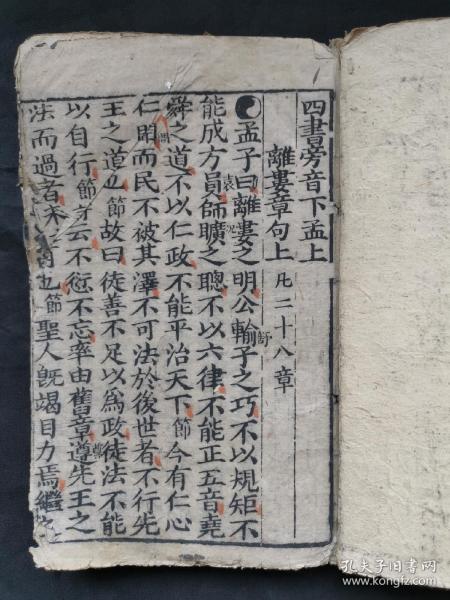 四書旁音下孟上
離婁章句上 凡二十八章
孟子曰離婁之明公輸子之巧不以規矩不
能成方員師曠之聰不以六律不能正五音堯
舜之道不以仁政不能平治天下節今有仁心
仁聞而民不被其澤不可法於後世者不行先
王之道也節故曰徒善不足以爲政徒法不能
以自行節詩云不愆不忘率由舊章遵先王之
法而過者未之有也節聖人既竭目力焉繼之
孔夫子旧书网